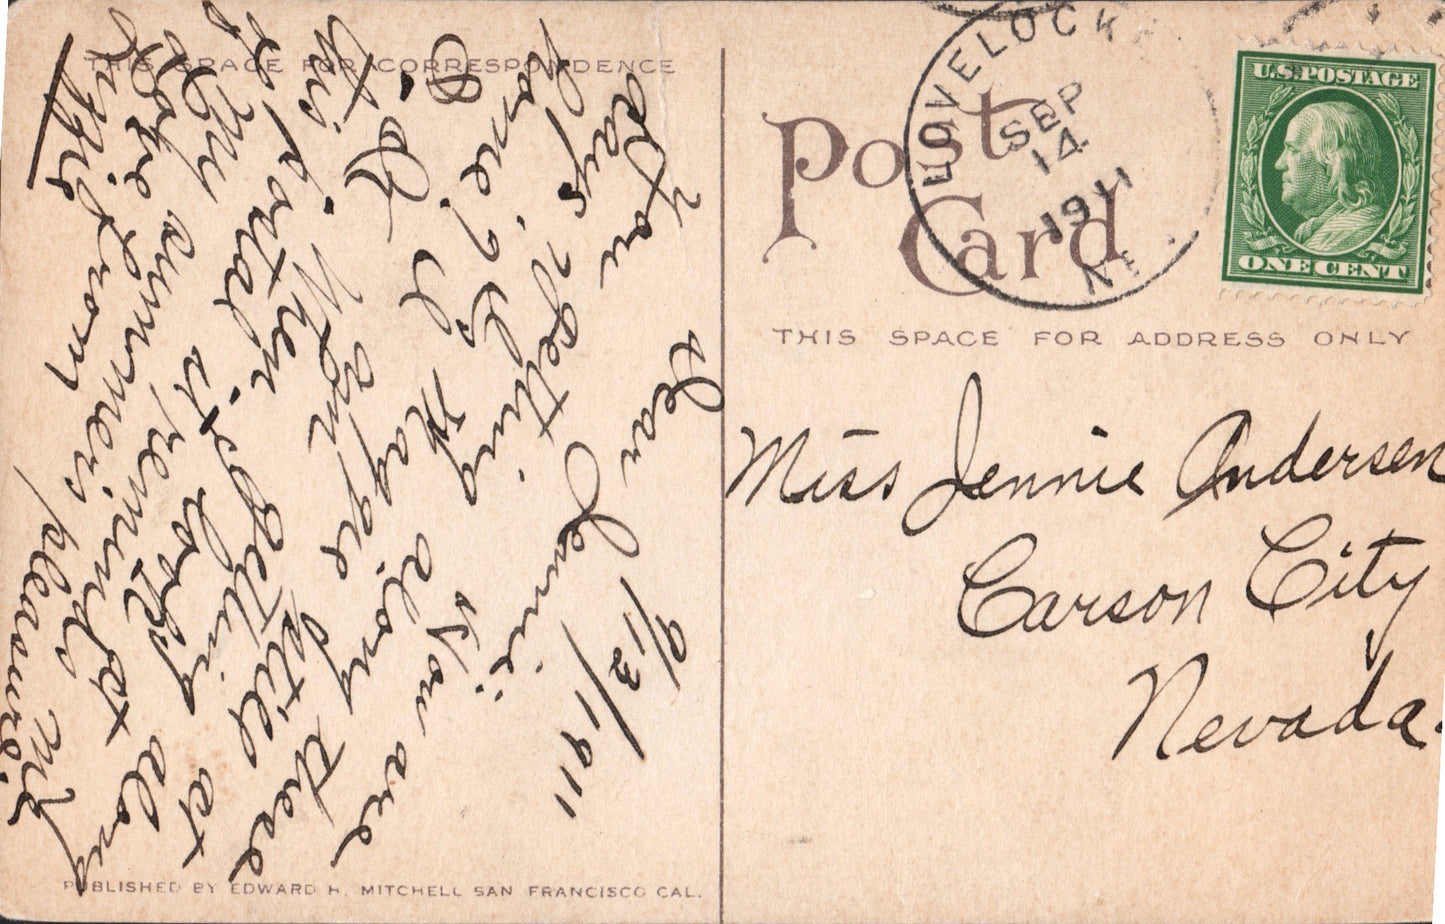 THIS SPACE FOR CORRESPONDENCE
9/13/1911
Dear Jennie: How are
you getting along these
days. Is Maggie still at
home? I am getting along
O.K. When I look at
this postal it reminds me
of my summer's pleasure.
from
PUBLISHED BY EDWARD H. MITCHELL SAN FRANCISCO CAL.
Post Card
LOVELOCK
SEP
14
1911
NEV.
U.S. POSTAGE
ONE CENT
THIS SPACE FOR ADDRESS ONLY
Miss Jennie Andersen
Carson City
Nevada.